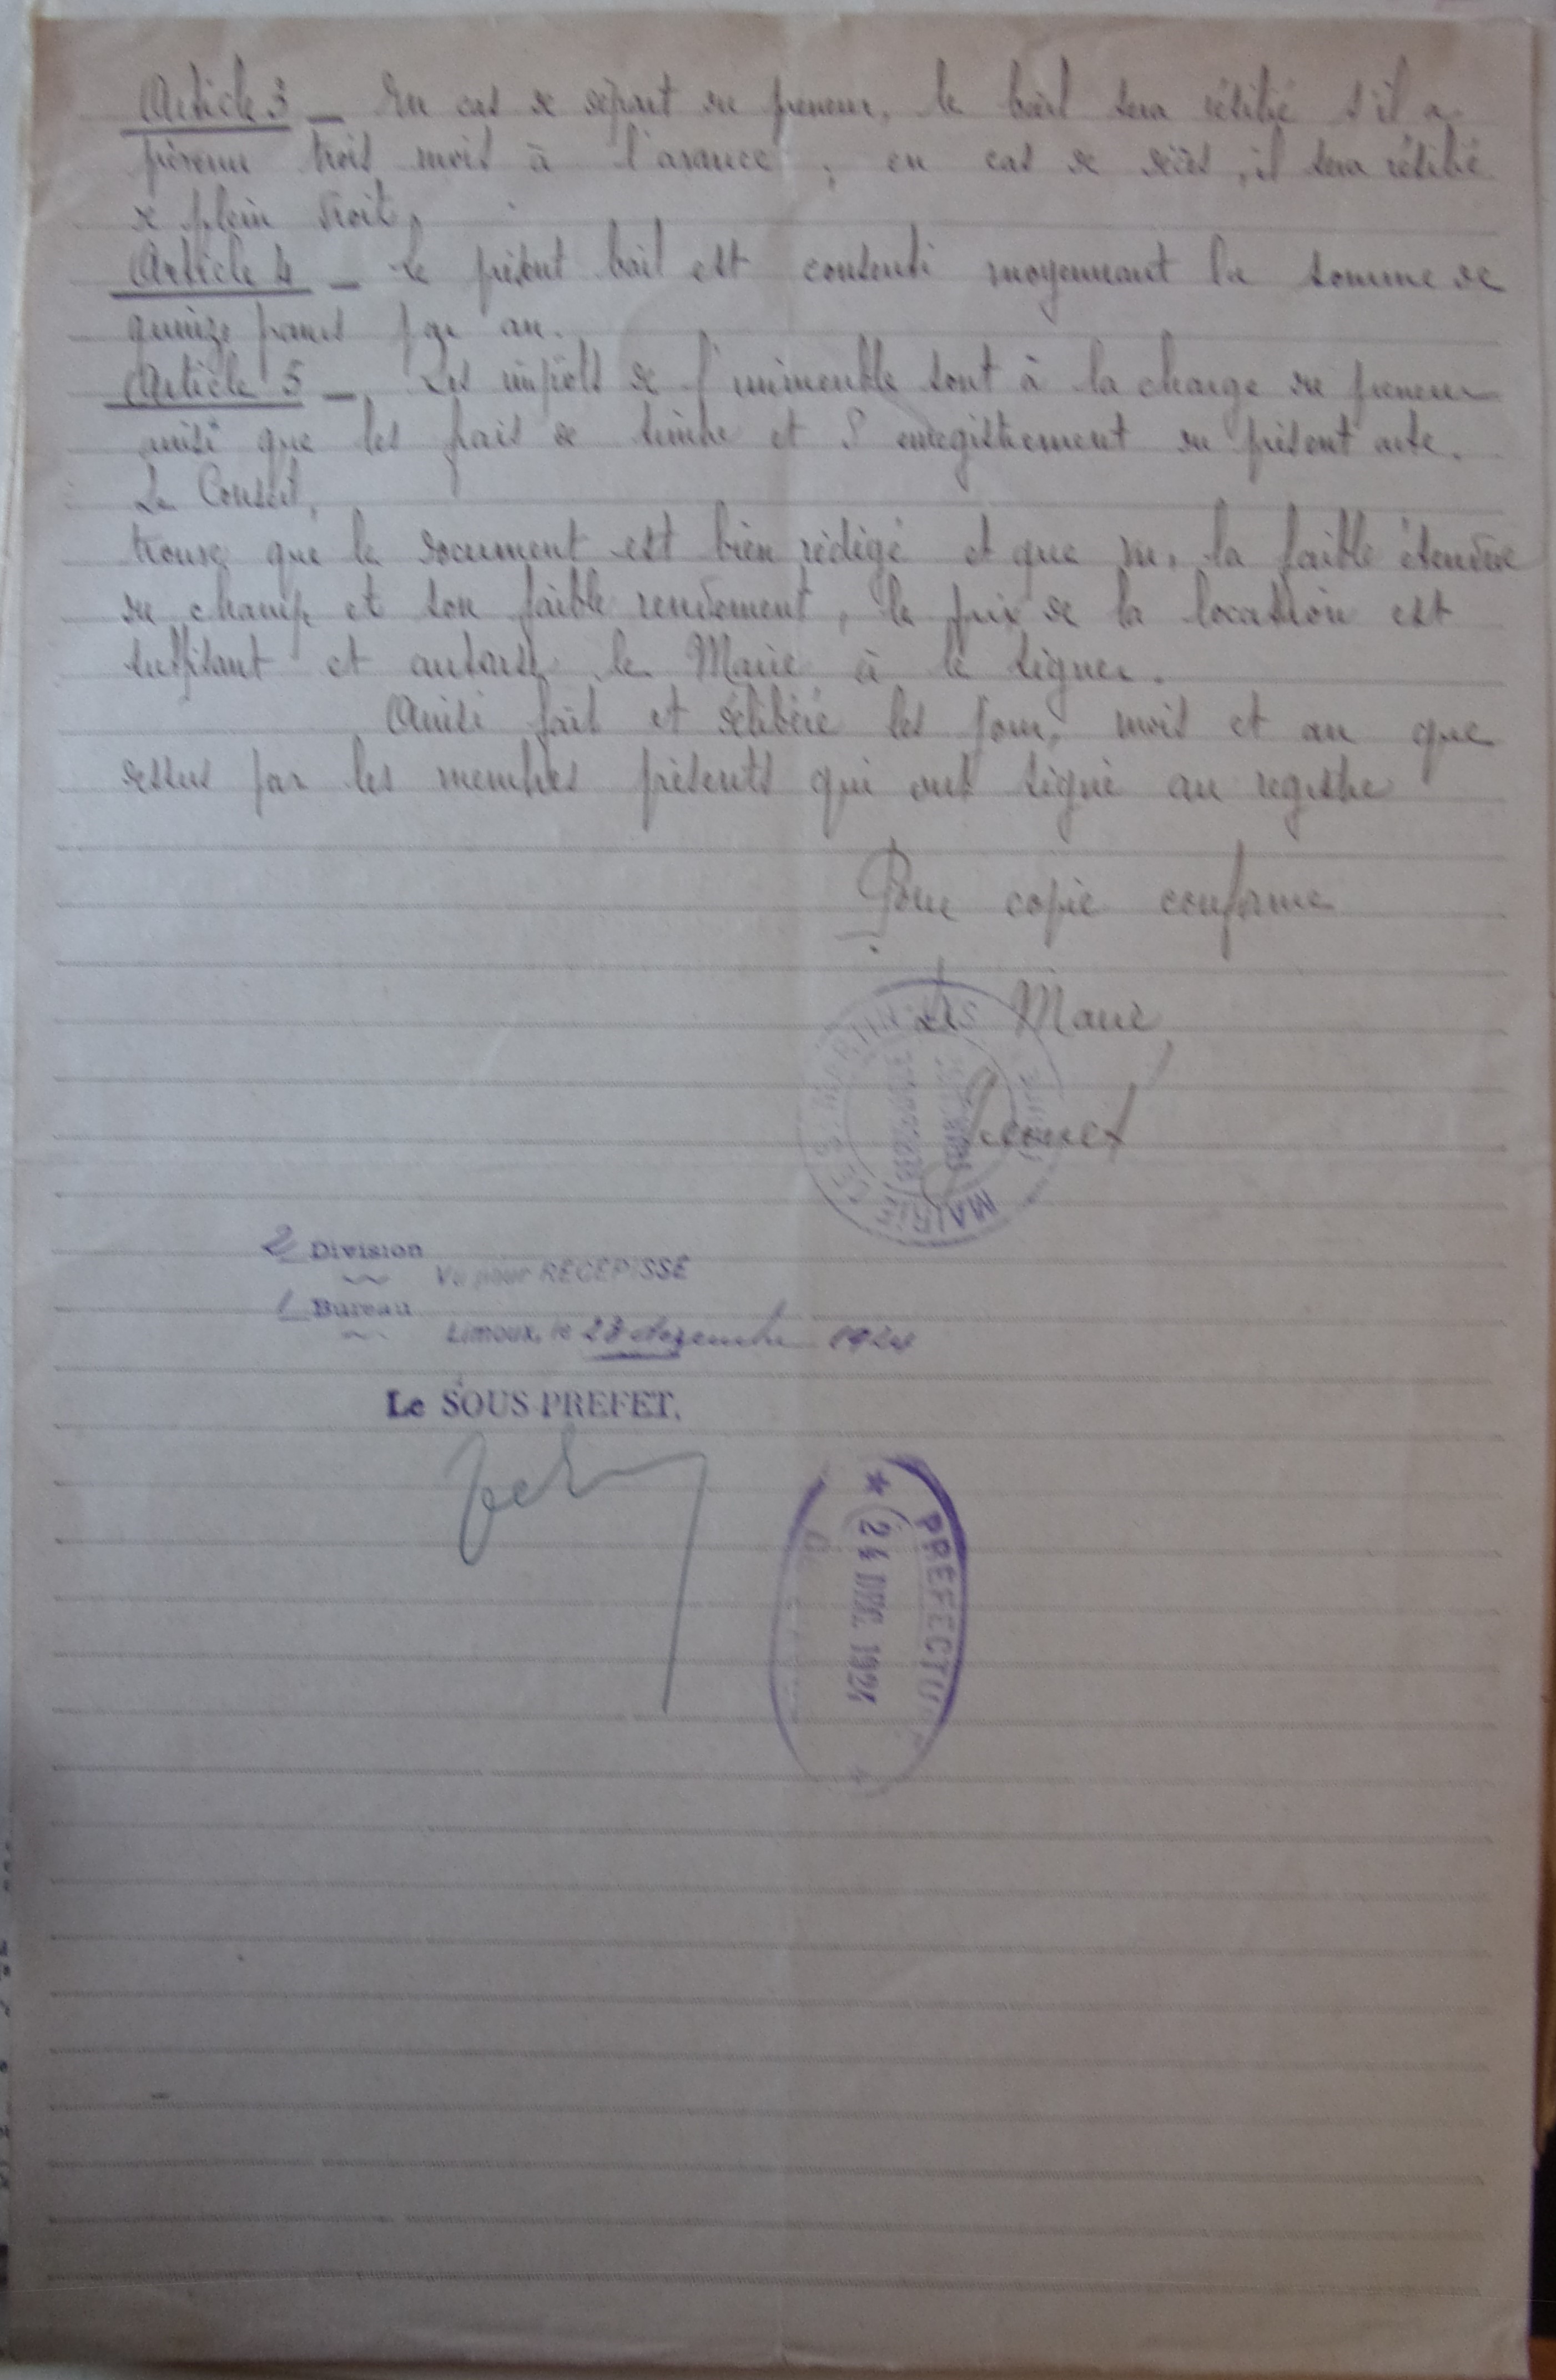 Article 3 — En cas de départ du preneur, le bail sera résilié s'il a
prévenu trois mois à l'avance ; en cas de décès, il sera résilié
de plein droit.
Article 4 — Le présent bail est consenti moyennant la somme de
quinze francs par an.
Article 5 — Les impôts de l'immeuble sont à la charge du preneur
ainsi que les frais de timbre et d'enregistrement du présent acte.
Le Conseil,
trouve que le document est bien rédigé et que vu, la faible étendue
du champ et son faible rendement, le prix de la location est
suffisant et autorise le Maire à le signer.
Ainsi fait et délibéré les jour, mois et an que
dessus par les membres présents qui ont signé au registre
Pour copie conforme
Le Maire,
MAIRIE
2 Division
Vu pour RECEPISSE
1 Bureau
Limoux, le 23 décembre 1924
Le SOUS-PREFET,
PREFECTURE
24 DEC. 1924